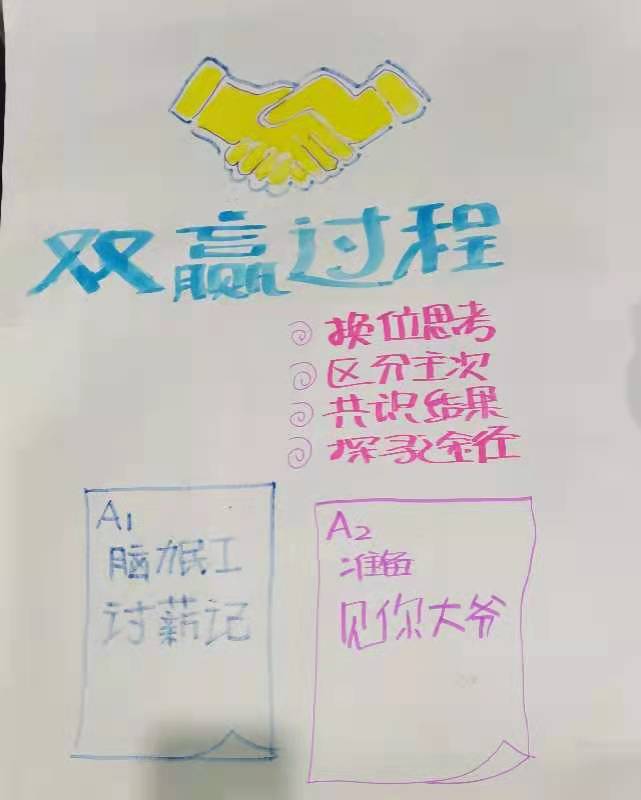 双赢过程
换位思考
区分主次
共识结果
探寻途径
A1
脑力民工
讨薪记
A2
准备
见你大爷